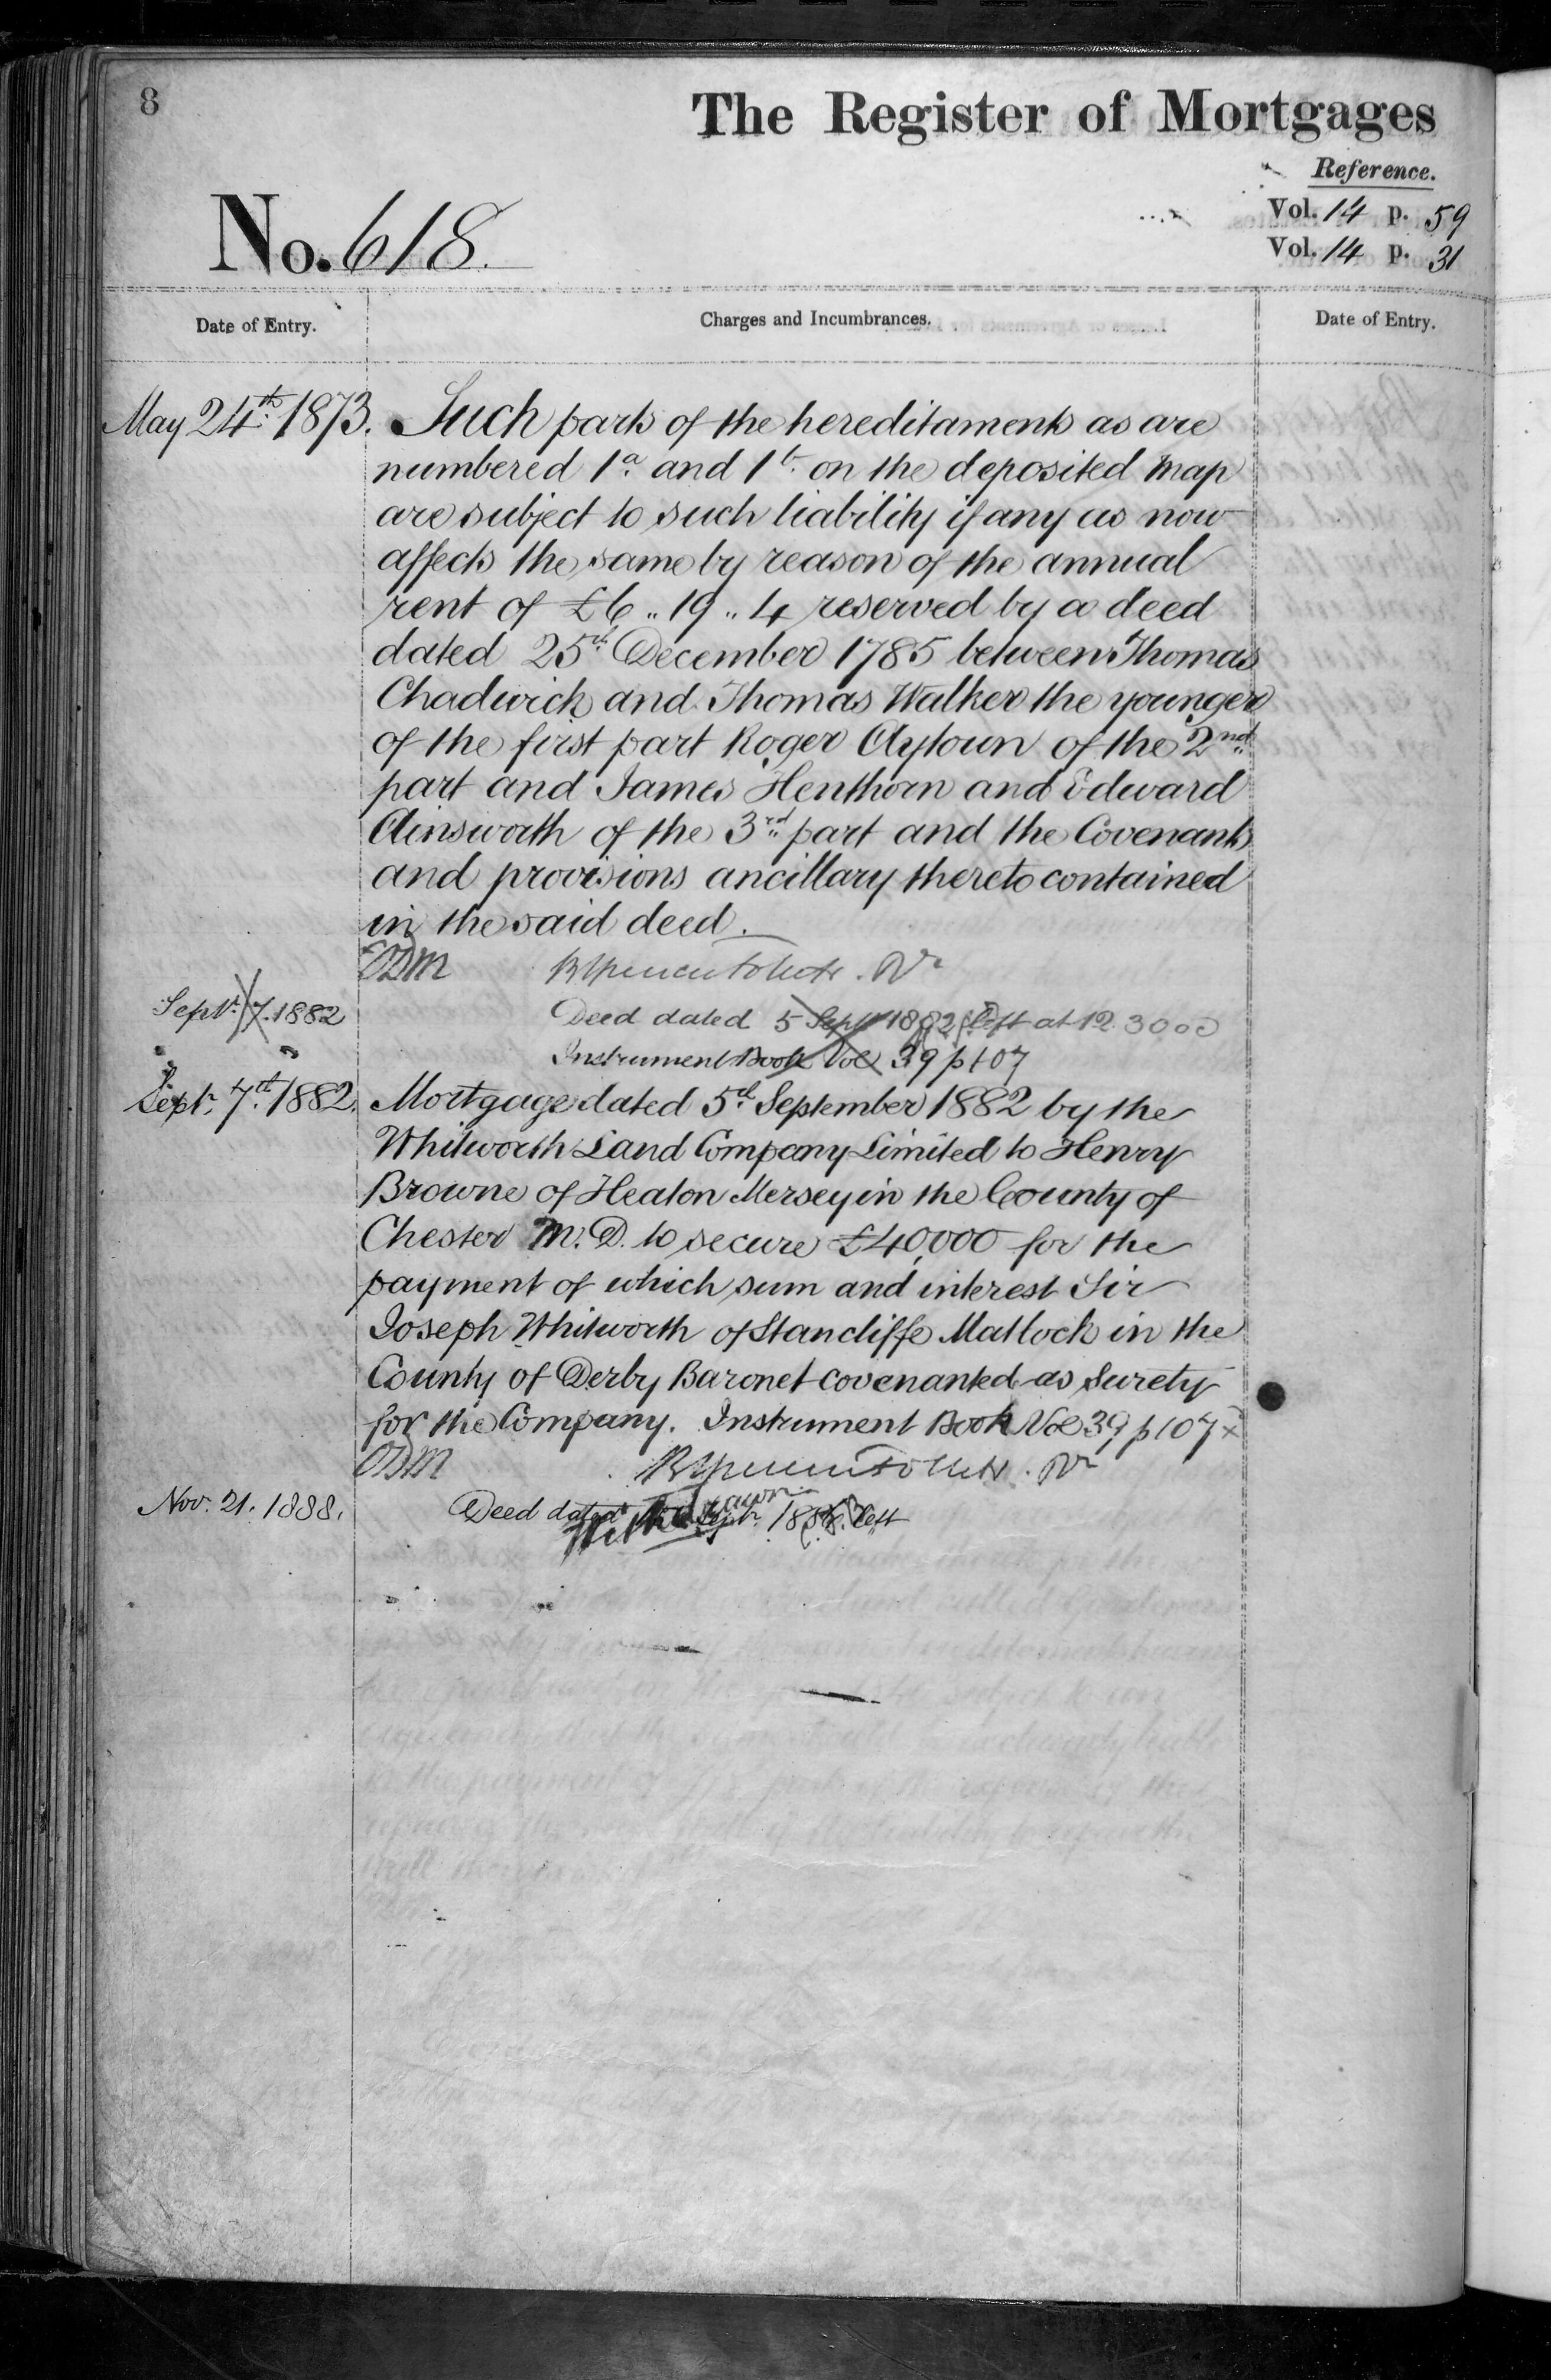 8
The Register of Mortgages
Reference.
Vol. 14 p. 59
Vol. 14 p. 31
No. 618.
Date of Entry.
Charges and Incumbrances.
Date of Entry.
May 24th 1873. Such parts of the hereditaments as are
numbered 1a and 1b on the deposited map
are subject to such liability if any as now
affects the same by reason of the annual
rent of £6 ,, 19 ,, 4 reserved by a deed
dated 25th December 1785 between Thomas
Chadwick and Thomas Walker the younger
of the first part Roger Aytoun of the 2nd
part and James Henthorn and Edward
Ainsworth of the 3rd part and the Covenants
and provisions ancillary thereto contained
in the said deed.
Septr. 7. 1882 Deed dated 5 Septr 1882 left at 12.30
Instrument Book Vol 39 p 107
Septr. 7th 1882. Mortgage dated 5th September 1882 by the
Whitworth Land Company Limited to Henry
Browne of Heaton Mersey in the County of
Chester M.D. to secure £40,000 for the
payment of which sum and interest Sir
Joseph Whitworth of Stancliffe Matlock in the
County of Derby Baronet covenanted as Surety
for the Company. Instrument Book Vol 39 p 107
Nov. 21. 1888. Deed dated Septr. 1888 left
Withdrawn